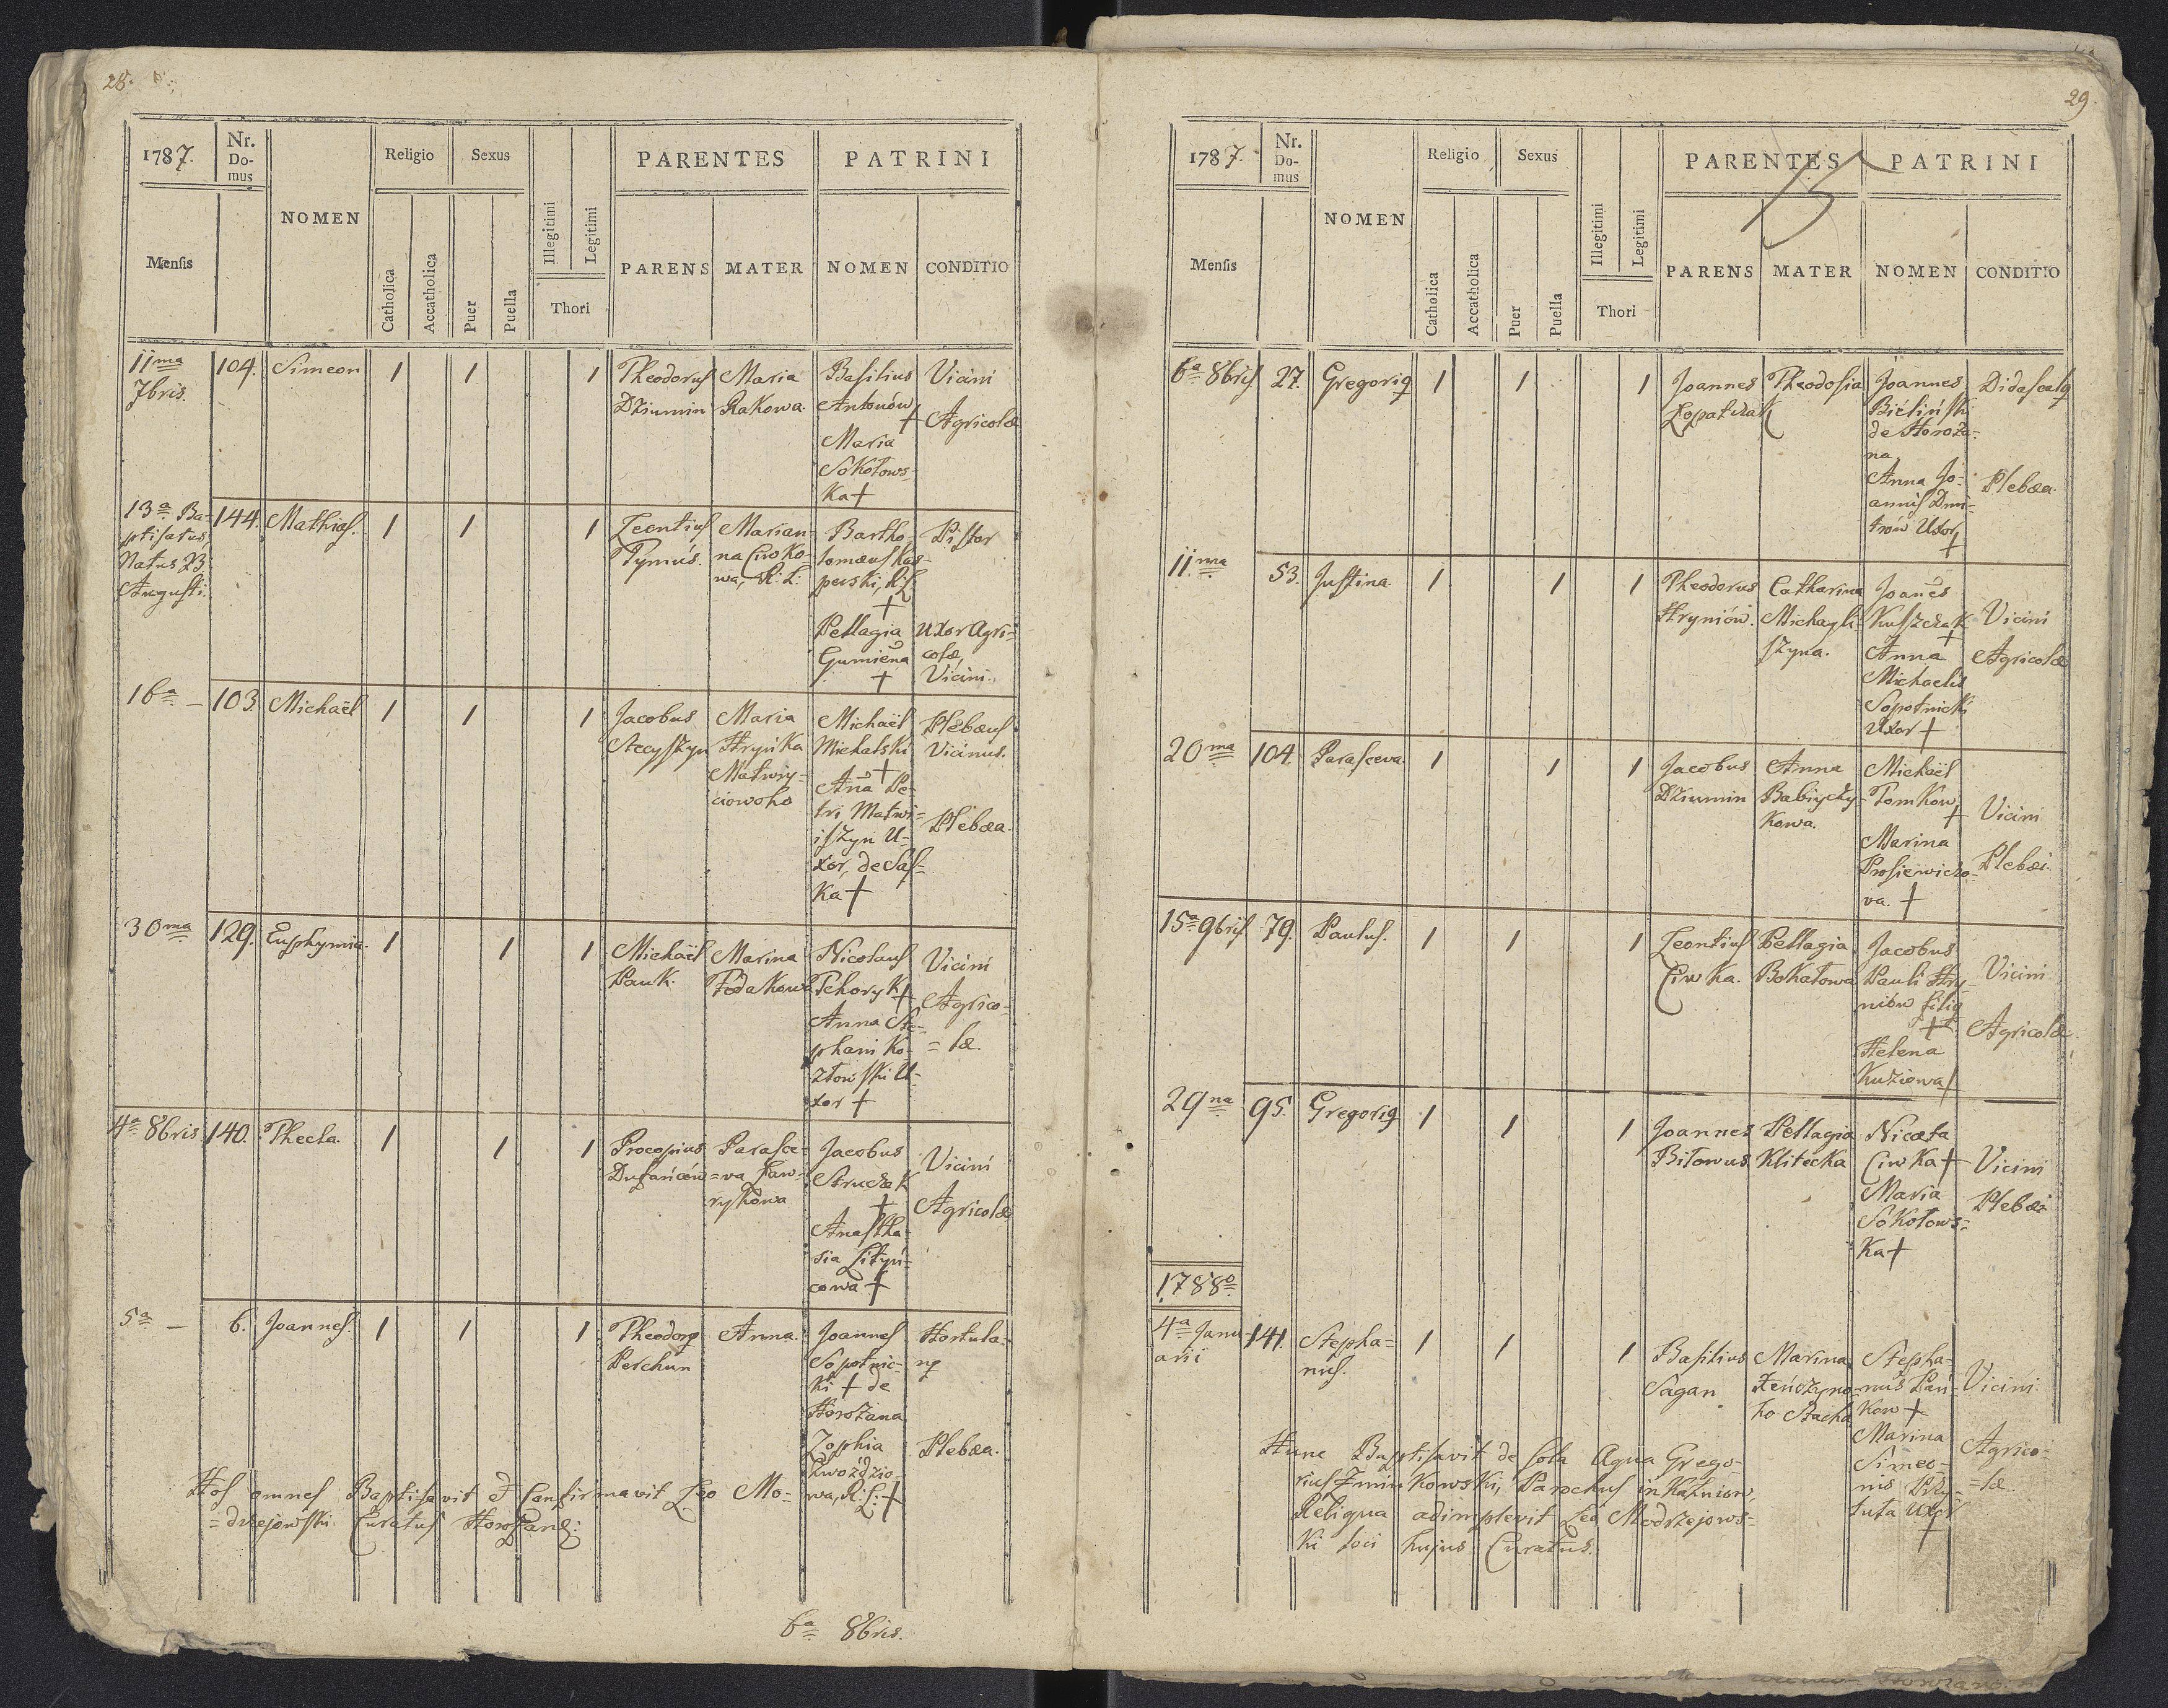 28.
1787.
Nr. Domus
NOMEN
Religio
Sexus
PARENTES
PATRINI
Mensis
Catholica
Accatholica
Puer
Puella
Illegitimi
Legitimi
Thori
PARENS
MATER
NOMEN
CONDITIO
11ma 7bris.
104.
Simeon
1
1
1
Theodorus
Dziumin
Maria
Rakowa.
Basilius
Antonów
+
Maria
Sokołows-
ka +
Vicini
Agricolæ
13a Ba-
ptisatus,
Natus 23
Augusti.
144.
Mathias.
1
1
1
Leontius
Tymuś.
Marian-
na Cwoko-
wa, R: L:
Bartho-
lomæus Kas-
perski, R: L
+
Pellagia
Gumieña
+
Pistor
Uxor Agri-
colæ,
Vicini.
16a —
103.
Michaël
1
1
1
Jacobus
Stecyszyn
Maria
Hryńka
Matwiy-
ciowoho
Michaël
Michalski
+
Aña Pe-
tri Matwi-
iszyn U-
xor, de Sas-
ka +
Plebæus
Vicinus.
Plebæa.
30ma
129.
Euphymia.
1
1
1
Michaël
Pauk.
Marina
Fedakowa
Nicolaus
Tchoryk +
Anna Ste-
phani Ko-
złowski U-
xor +
Vicini
Agrico-
= læ.
4a 8bris
140.
Thecla.
1
1
1
Procopius
Dufańców
Parasce-
= va Law-
rykowa
Jacobus
Struczak
+
Anastha-
sia Lityń-
cowa +
Vicini
Agricolæ
5a —
6.
Joannes.
1
1
1
Theodorq
Perchun
Anna.
Joannes
Sopotnic-
ki + de
Horożana
Zophia
Gwoździo-
wa, R: L: +
Hortula-
nq
Plebæa.
Hos omnes Baptisavit & Confirmavit Leo Mo-
= drzejowski Curatus Horożanæ:
6a 8bris.
29.
1787.
Nr. Domus
NOMEN
Religio
Sexus
PARENTES
PATRINI
Mensis
Catholica
Accatholica
Puer
Puella
Illegitimi
Legitimi
Thori
PARENS
MATER
NOMEN
CONDITIO
6a 8bris
27.
Gregoriq
1
1
1
Joannes
Łopatczak
Theodosia
Joannes
Bieliński
de Horoża-
na,
Anna Jo-
annis Dmi-
trów Uxor
+
Didascalq
Plebæa.
11ma
53.
Justina.
1
1
1
Theodorus
Hryniów.
Catharina
Michayli-
szyna.
Joañes
Kuszczak
+
Anna
Michaelis
Sopotnicki
Uxor +
Vicini
Agricolæ
20ma
104.
Parasceva.
1
1
1
Jacobus
Dziumin
Anna
Babiyczy-
kowa.
Michaël
Tomkow
+
Marina
Prosiewiczo-
va. +
Vicini
Plebæi.
15a 9bris
79.
Paulus.
1
1
1
Leontius
Ciwka.
Pellagia
Bokałowa
Jacobus
Pauli Hry-
niów filiq
+
Helena
Kuziowa +
Vicini
Agricolæ.
29na
95.
Gregoriq
1
1
1
Joannes
Biłowus
Pellagia
Klitecka
Nicæta
Ciwka +
Maria
Sokołows-
ka +
Vicini
Plebæi.
1788o.
4a Janu-
arii
141.
Stepha=
nus.
1
1
1
Basilius
Sagan
Marina
Feńczyno-
ho Stacha
Stepha-
nus Pań-
kow +
Marina
Simeo-
nis Pry-
tuła Uxor
+
Vicini
Agrico-
= læ.
Hunc Baptisavit de sola Aqua Grego-
rius Zminkowski, Parochus in Kahuiow,
Reliqua adimplevit Leo Modrzejows-
ki loci hujus Curatus.